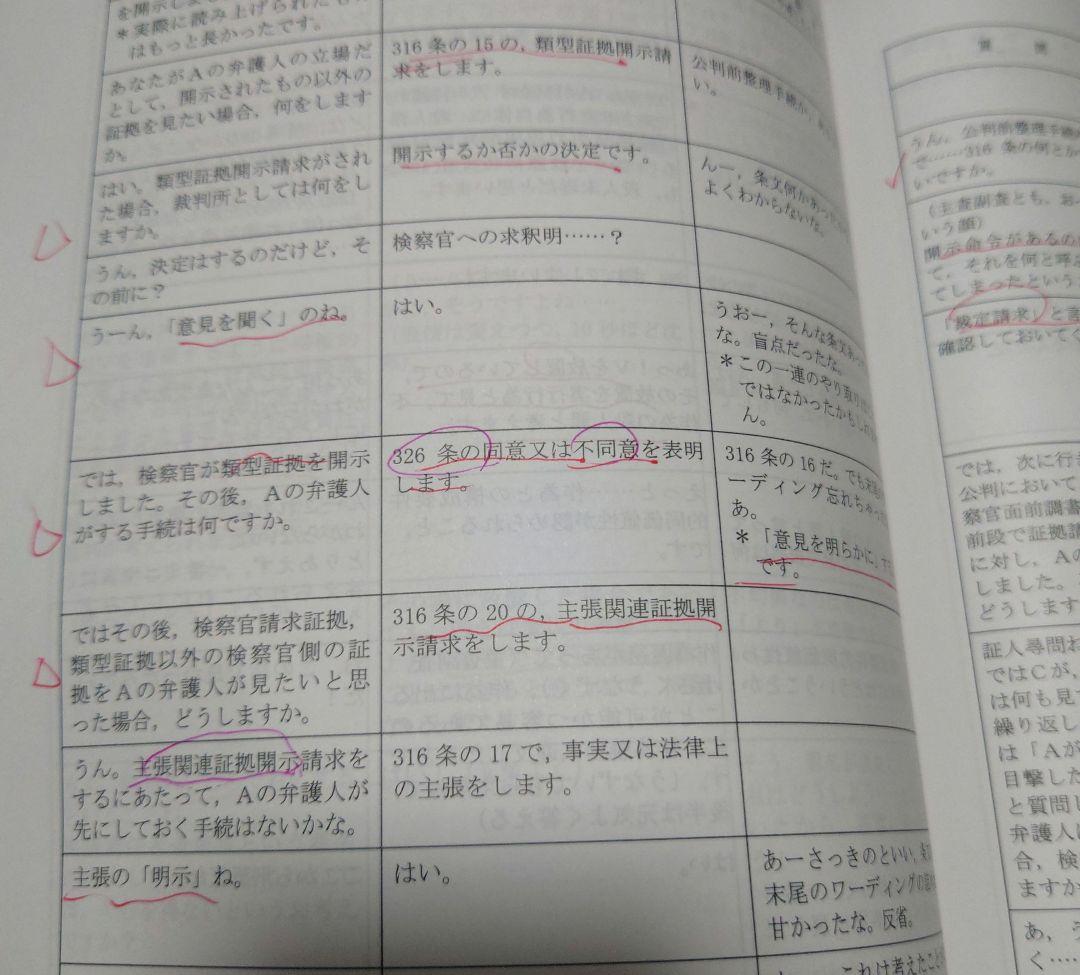 を開示しま
＊実際に読み上げられた
はもっと長かったです。
あなたがＡの弁護人の立場だ
として，開示されたもの以外の
証拠を見たい場合，何をします
か。
316 条の 15 の，類型証拠開示請
求をします。
公判前整理手続か
い。
はい。類型証拠開示請求がされ
た場合，裁判所としては何をし
ますか。
開示するか否かの決定です。
んー，条文何かあった
よくわからないな。
うん，決定はするのだけど，そ
の前に？
検察官への求釈明……？
うーん，「意見を聞く」のね。
はい。
うおー，そんな条文あっ
な。盲点だったな。
＊この一連のやり取りは
ではなかったかもしれ
ん。
では，検察官が類型証拠を開示
しました。その後，Ａの弁護人
がする手続は何ですか。
326 条の同意又は不同意を表明
します。
316 条の 16 だ。でも末尾
ーディング忘れちゃっ
あ。
＊「意見を明らかに」す
です。
ではその後，検察官請求証拠，
類型証拠以外の検察官側の証
拠をＡの弁護人が見たいと思
った場合，どうしますか。
316 条の 20 の，主張関連証拠開
示請求をします。
うん。主張関連証拠開示請求を
するにあたって，Ａの弁護人が
先にしておく手続はないかな。
316 条の 17 で，事実又は法律上
の主張をします。
主張の「明示」ね。
はい。
あーさっきのといい，末
末尾のワーディングの
甘かったな。反省。
これは考えたこと
質 問
うん，公判前整理手続
ぜ……316 条の何とか
いですか。
（主査副査とも，お
いう顔）
開示命令があるの
て，それを何と呼
でしまったという
「裁定請求」と言
確認しておいてく
では，次に行き
公判において
察官面前調書
前段で証拠請
に対し，Ａの
しました。
どうします
証人尋問お
ではＣが，
は何も見
繰り返し
は「Ａが
目撃した
と質問し
弁護人は
合，検
ますか
あ，う
く……